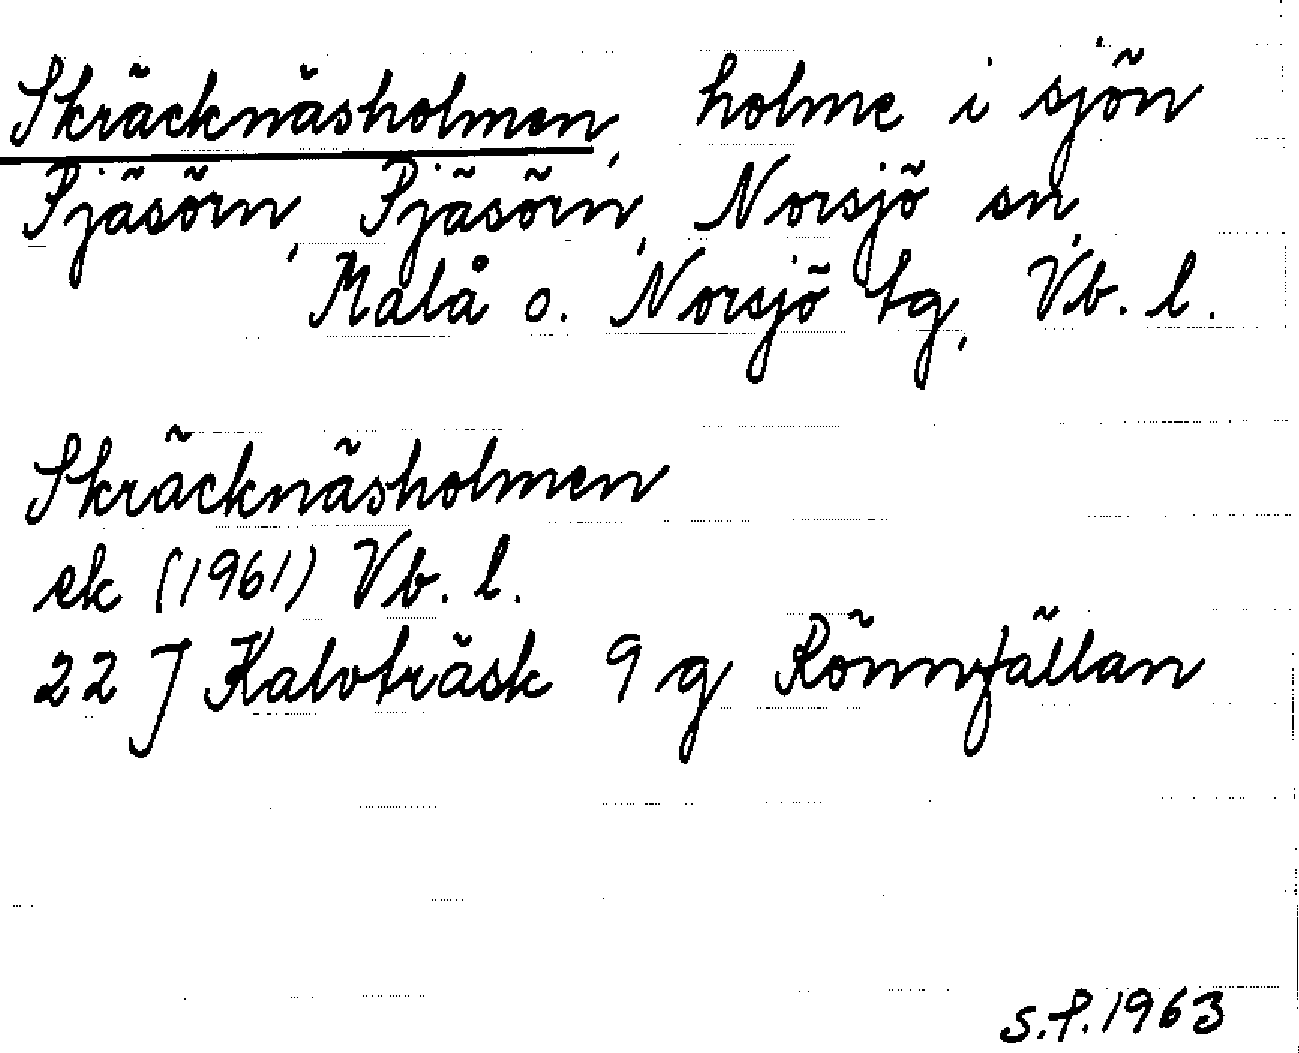 Skräcknäsholmen, holme i sjön
Pjäsörn, Pjäsörn, Norsjö sn,
Malå o. Norsjö tg, Vb. l.
Skräcknäsholmen
ek (1961) Vb. l.
22 J Kalvträsk 9 g Rönnfällan
S.P. 1963